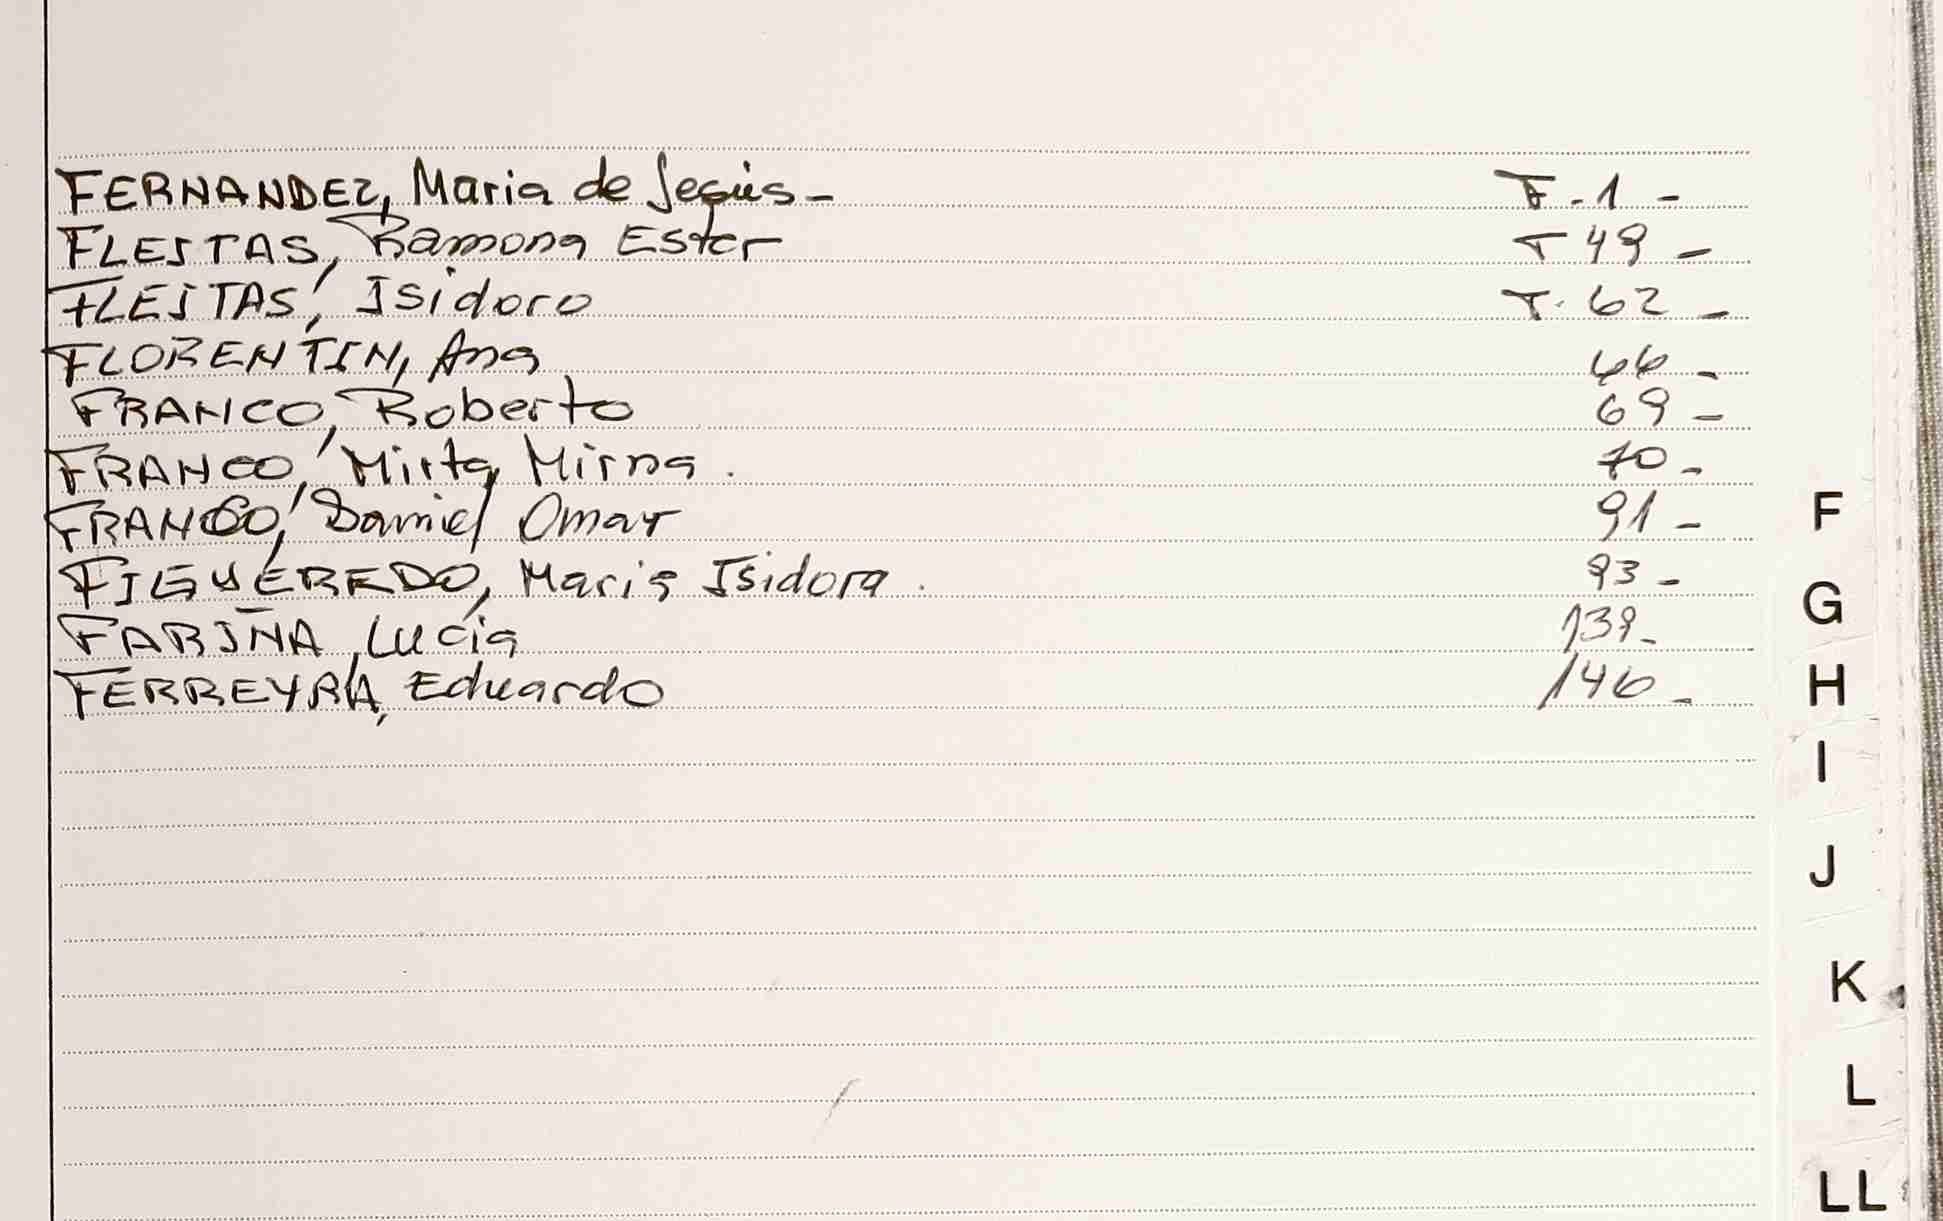 FERNANDEZ, Maria de Jesús- F-1-
FLEITAS, Ramona Ester T 49-
FLEITAS, Isidoro T. 62-
FLORENTIN, Ana 66-
FRANCO, Roberto 69-
FRANCO, Mirta Mirna. 70-
FRANCO, Daniel Omar 91-
FIGUEREDO, Maria Isidora. 93-
FARIÑA, Lucía 139-
FERREYRA, Eduardo 146-
F
G
H
I
J
K
L
LL